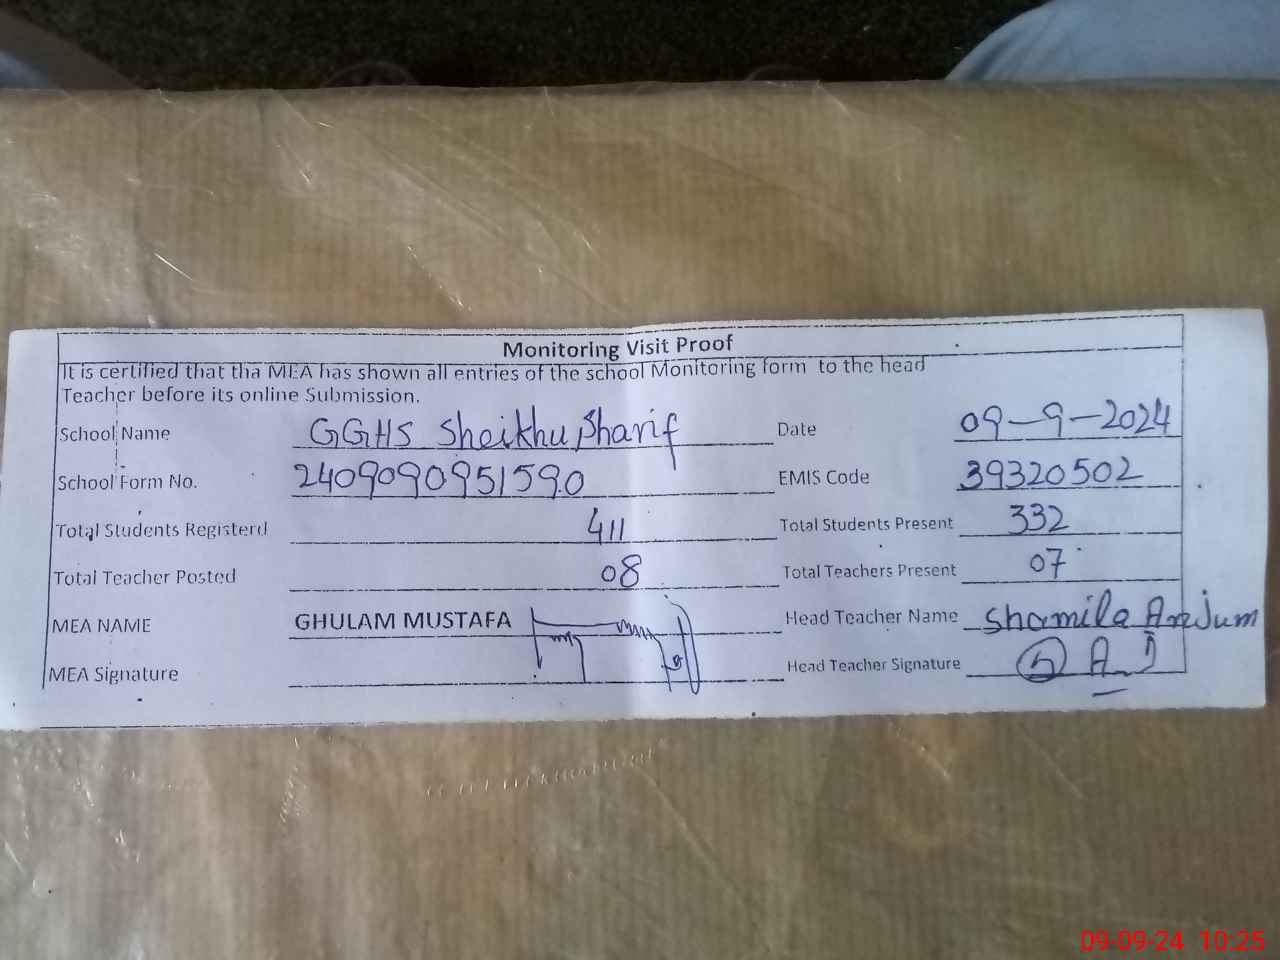 Monitoring Visit Proof
It is certified that tha MEA has shown all entries of the school Monitoring form to the head
Teacher before its online Submission.
School Name GGHS Sheikhu Sharif Date 09-9-2024
School Form No. 2409090951590 EMIS Code 39320502
Total Students Registerd 411 Total Students Present 332
Total Teacher Posted 08 Total Teachers Present 07
MEA NAME GHULAM MUSTAFA Head Teacher Name Shamila Anjum
MEA Signature Head Teacher Signature
09-09-24 10:25